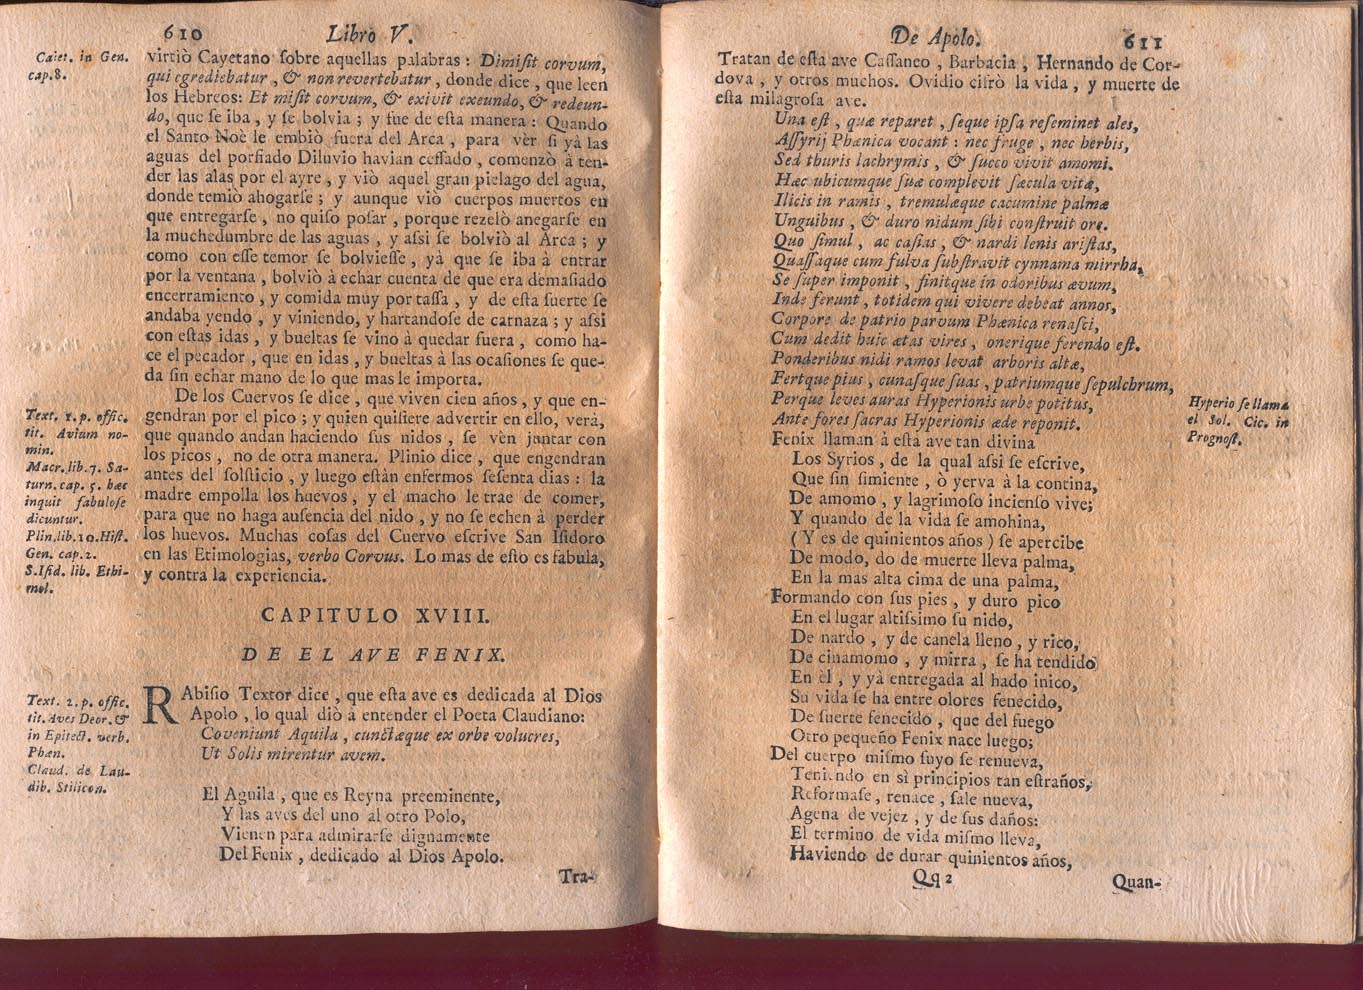 610 Libro V.
Caiet. in Gen.
cap. 8.
virtiò Cayetano ſobre aquellas palabras : Dimiſit corvum,
qui egrediebatur , & non revertebatur , donde dice , que leen
los Hebreos: Et miſit corvum, & exivit exeundo, & redeun-
do, que ſe iba , y ſe bolvia ; y fue de eſta manera : Quando
el Santo Noè le embiò fuera del Arca , para vèr ſi yà las
aguas del porfiado Diluvio havian ceſſado , comenzò à ten-
der las alas por el ayre , y viò aquel gran pielago del agua,
donde temiò ahogarſe ; y aunque viò cuerpos muertos en
que entregarſe , no quiſo poſar , porque rezelò anegarſe en
la muchedumbre de las aguas , y aſsi ſe bolviò al Arca ; y
como con eſſe temor ſe bolvieſſe , yà que ſe iba à entrar
por la ventana , bolviò à echar cuenta de que era demaſiado
encerramiento , y comida muy por taſſa , y de eſta ſuerte ſe
andaba yendo , y viniendo, y hartandoſe de carnaza ; y aſsi
con eſtas idas , y bueltas ſe vino à quedar fuera , como ha-
ce el pecador , que en idas , y bueltas à las ocaſiones ſe que-
da ſin echar mano de lo que mas le importa.
De los Cuervos ſe dice , que viven cien años , y que en-
gendran por el pico ; y quien quiſiere advertir en ello, verà,
que quando andan haciendo ſus nidos , ſe vèn juntar con
los picos , no de otra manera. Plinio dice , que engendran
antes del ſolſticio , y luego eſtàn enfermos ſeſenta dias : la
madre empolla los huevos , y el macho le trae de comer,
para que no haga auſencia del nido , y no ſe echen à perder
los huevos. Muchas coſas del Cuervo eſcrive San Iſidoro
en las Etimologias, verbo Corvus. Lo mas de eſto es fabula,
y contra la experiencia.
Text. 1. p. offic.
tit. Avium no-
min.
Macr. lib. 7. Sa-
turn. cap. 5. hæc
inquit fabuloſe
dicuntur.
Plin. lib. 10. Hiſt.
Gen. cap. 2.
S. Iſid. lib. Ethi-
mol.
CAPITULO XVIII.
DE EL AVE FENIX.
Text. 2. p. offic.
tit. Aves Deor. &
in Epitect. verb.
Phæn.
Claud. de Lau-
dib. Stilicon.
RAbiſio Textor dice , que eſta ave es dedicada al Dios
Apolo , lo qual diò à entender el Poeta Claudiano:
Coveniunt Aquila , cunctæque ex orbe volucres,
Ut Solis mirentur avem.
El Aguila , que es Reyna preeminente,
Y las aves del uno al otro Polo,
Vienen para admirarſe dignamente
Del Fenix , dedicado al Dios Apolo.
Tra-
De Apolo. 611
Tratan de eſta ave Caſſaneo , Barbacia , Hernando de Cor-
dova , y otros muchos. Ovidio cifrò la vida , y muerte de
eſta milagroſa ave.
Una eſt , quæ reparet , ſeque ipſa reſeminet ales,
Aſſyrij Phænica vocant : nec fruge , nec herbis,
Sed thuris lachrymis , & ſucco vivit amomi.
Hæc ubicumque ſuæ complevit ſæcula vitæ,
Ilicis in ramis , tremulæque cacumine palmæ
Unguibus , & duro nidum ſibi conſtruit ore.
Quo ſimul , ac caſias , & nardi lenis ariſtas,
Quaſſaque cum fulva ſubſtravit cynnama mirrha,
Se ſuper imponit , finitque in odoribus ævum,
Inde ferunt , totidem qui vivere debeat annos,
Corpore de patrio parvum Phænica renaſci,
Cum dedit huic ætas vires , onerique ferendo eſt.
Ponderibus nidi ramos levat arboris altæ,
Fertque pius , cunaſque ſuas , patriumque ſepulchrum,
Perque leves auras Hyperionis urbe potitus,
Ante fores ſacras Hyperionis æde reponit.
Hyperio ſe llama
el Sol. Cic. in
Prognoſt.
Fenix llaman à eſta ave tan divina
Los Syrios , de la qual aſsi ſe eſcrive,
Que ſin ſimiente , ò yerva à la contina,
De amomo , y lagrimoſo incienſo vive;
Y quando de la vida ſe amohina,
( Y es de quinientos años ) ſe apercibe
De modo, do de muerte lleva palma,
En la mas alta cima de una palma,
Formando con ſus pies , y duro pico
En el lugar altiſsimo ſu nido,
De nardo , y de canela lleno , y rico,
De cinamomo , y mirra , ſe ha tendido
En èl , y yà entregada al hado inico,
Su vida ſe ha entre olores fenecido,
De ſuerte fenecido , que del fuego
Otro pequeño Fenix nace luego;
Del cuerpo miſmo ſuyo ſe renueva,
Teniendo en sì principios tan eſtraños,
Reformaſe , renace , ſale nueva,
Agena de vejez , y de ſus daños:
El termino de vida miſmo lleva,
Haviendo de durar quinientos años,
Qq 2 Quan-